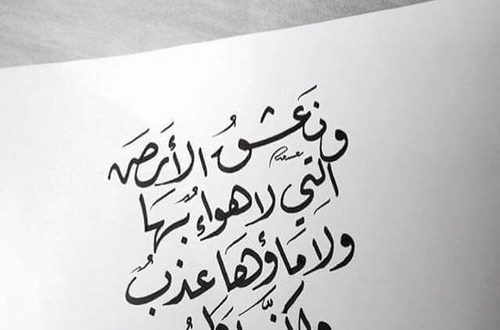 ونَعشقُ الأرضَ
التِي لا هواءٌ بهَا
ولا مَاؤهَا عذبٌ